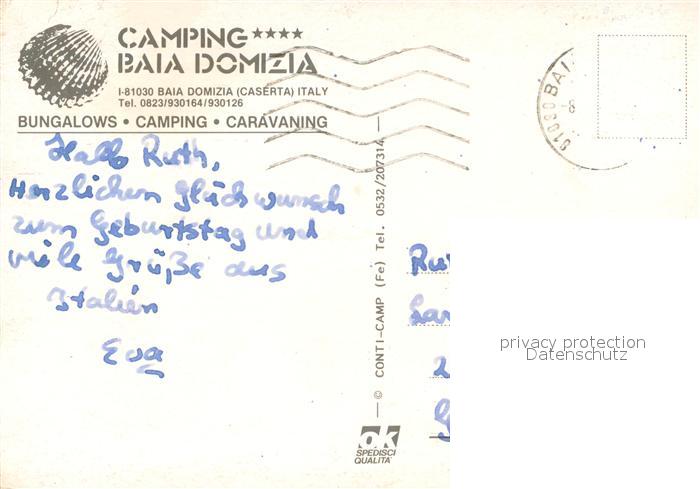 CAMPING ****
BAIA DOMIZIA
I-81030 BAIA DOMIZIA (CASERTA) ITALY
Tel. 0823/930164/930126
BUNGALOWS • CAMPING • CARAVANING
Hallo Ruth,
Herzlichen Glückwunsch
zum Geburtstag und
viele Grüße aus
Italien
Eva
— © CONTI-CAMP (Fe) Tel. 0532/207314 —
ok
SPEDISCI
QUALITA'
81030 BAI
-8
Ru
privacy protection
Datenschutz